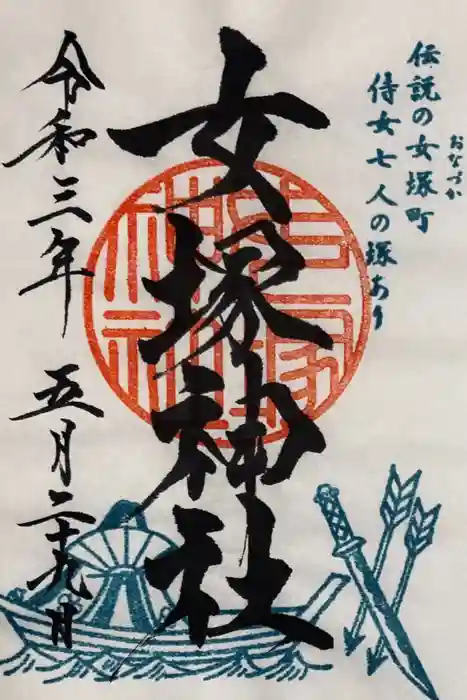 伝説の女塚町
おなづか
侍女七人の塚あり
女塚神社
令和三年 五月二十九日